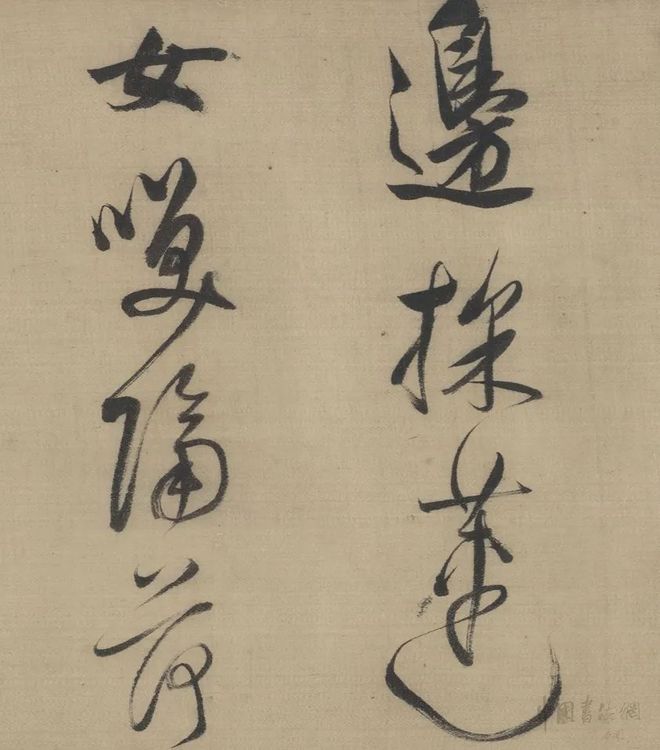 邊採蓮
女𥬇隔荷
中國書法網